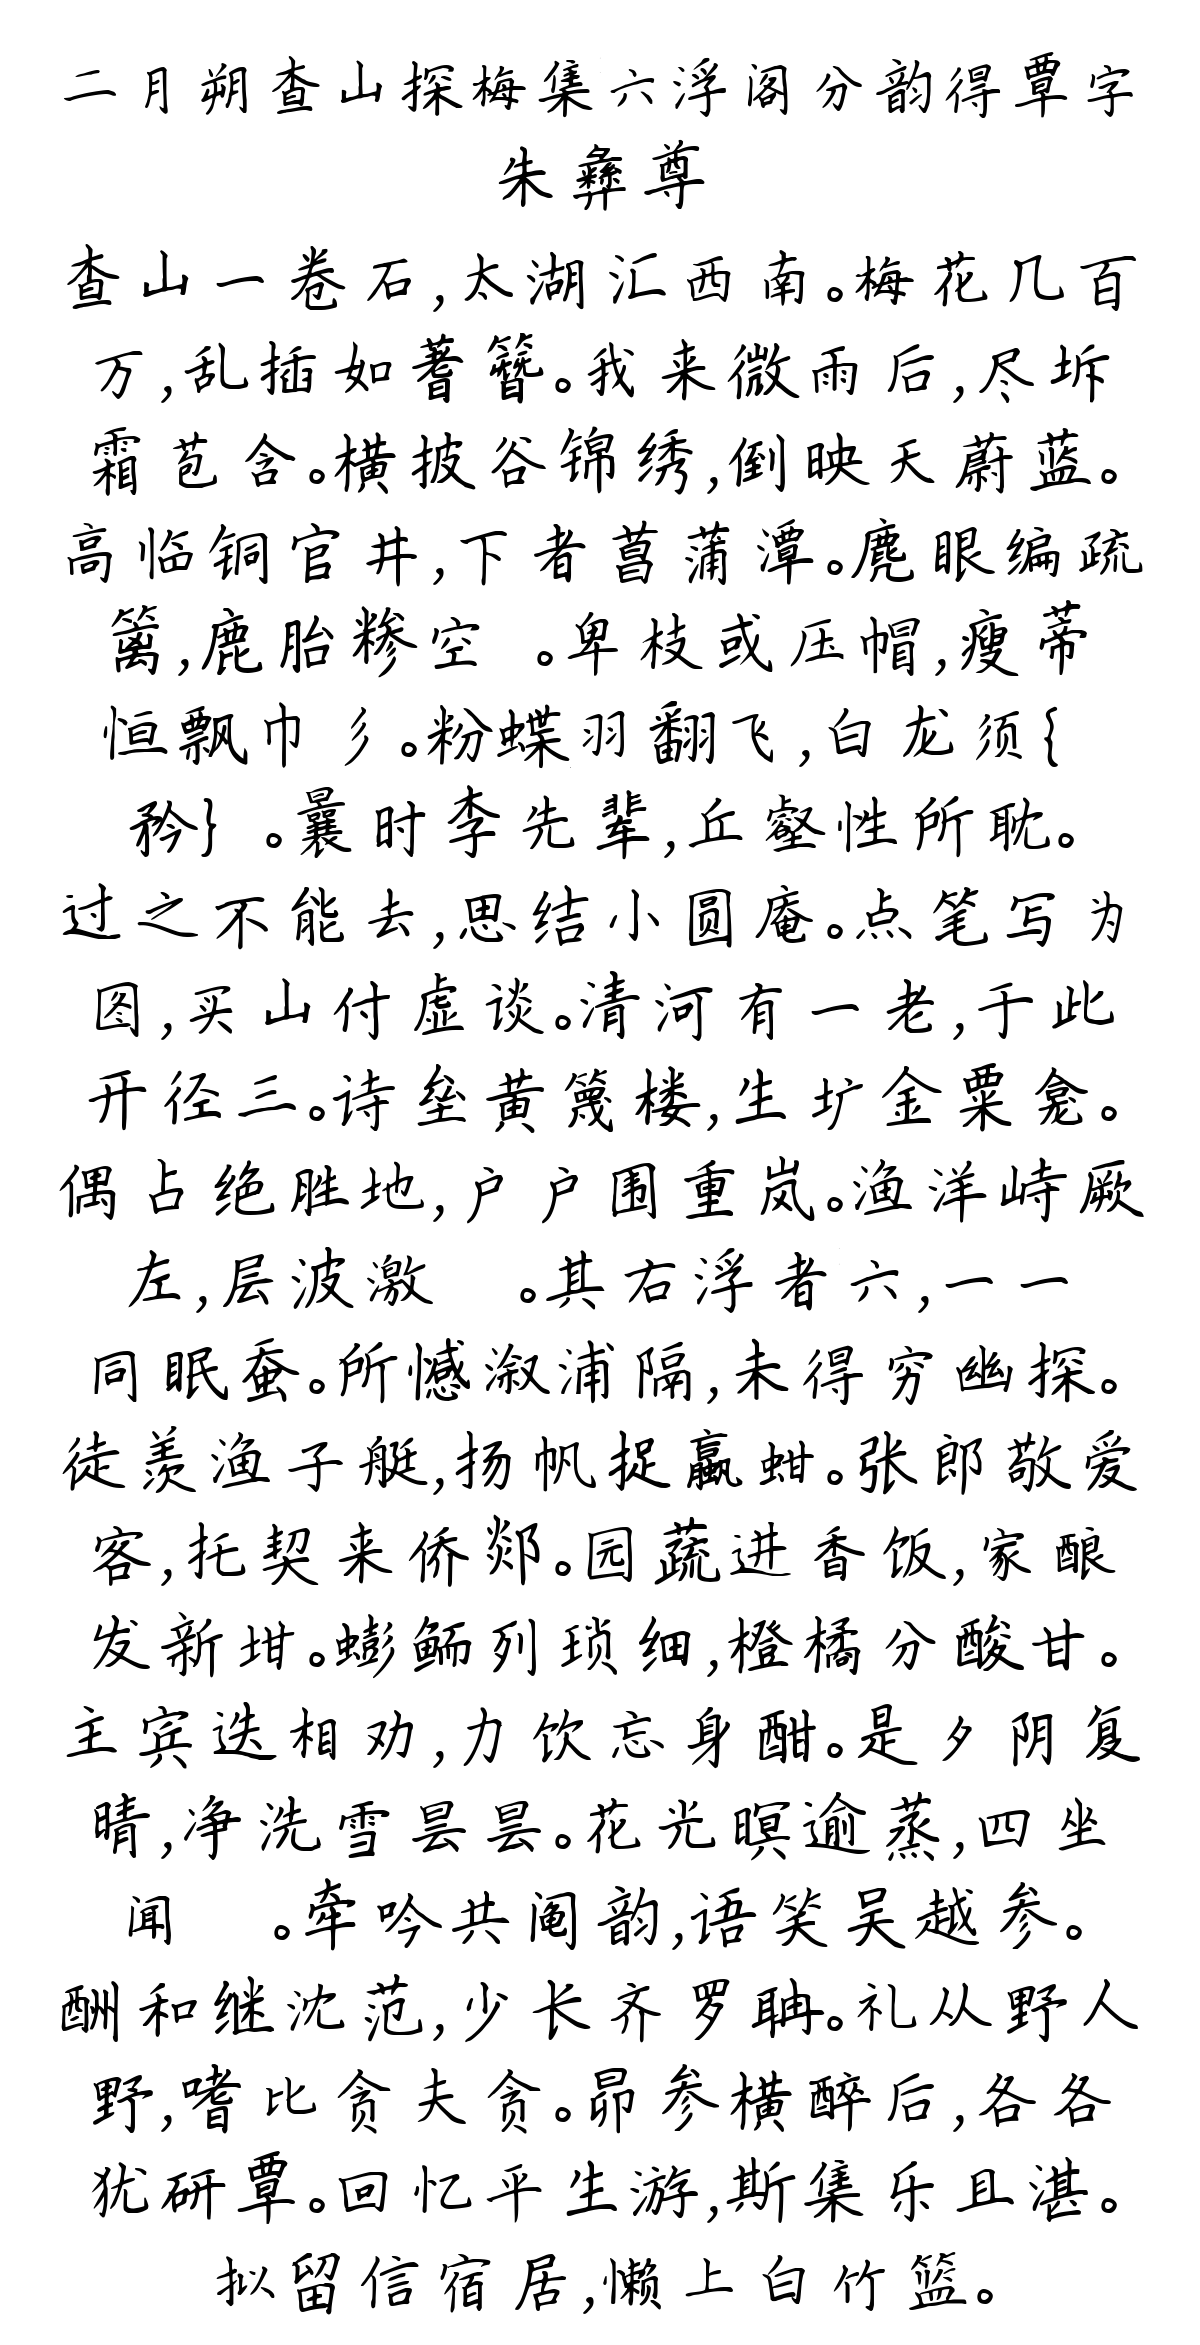 二月朔查山探梅集六浮阁分韵得覃字
朱彝尊
查山一卷石,太湖汇西南。梅花几百
万,乱插如蓍簪。我来微雨后,尽坼
霜苞含。横披谷锦绣,倒映天蔚蓝。
高临铜官井,下者菖蒲潭。麂眼编疏
篱,鹿胎糁空 。卑枝或压帽,瘦蒂
恒飘巾彡。粉蝶羽翻飞,白龙须{
矜} 。曩时李先辈,丘壑性所耽。
过之不能去,思结小圆庵。点笔写为
图,买山付虚谈。清河有一老,于此
开径三。诗垒黄篾楼,生圹金粟龛。
偶占绝胜地,户户围重岚。渔洋峙厥
左,层波激 。其右浮者六,一一
同眠蚕。所憾溆浦隔,未得穷幽探。
徒羡渔子艇,扬帆捉蠃蚶。张郎敬爱
客,托契来侨郯。园蔬进香饭,家酿
发新坩。蟛鲕列琐细,橙橘分酸甘。
主宾迭相劝,力饮忘身酣。是夕阴复
晴,净洗雪昙昙。花光暝逾蒸,四坐
闻 。牵吟共阄韵,语笑吴越参。
酬和继沈范,少长齐罗聃。礼从野人
野,嗜比贪夫贪。昴参横醉后,各各
犹研覃。回忆平生游,斯集乐且湛。
拟留信宿居,懒上白竹篮。